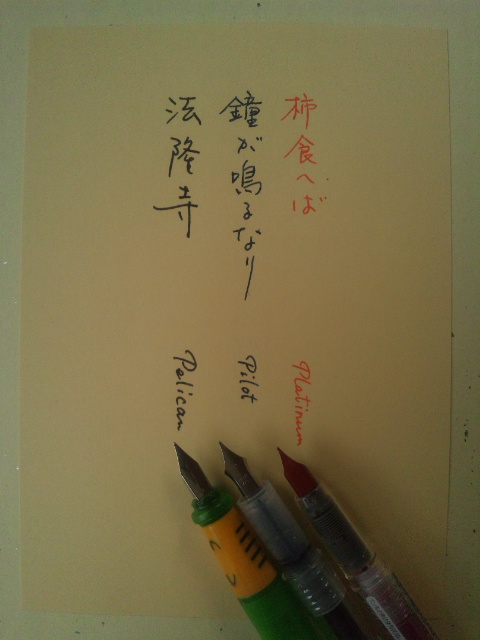 柿食へば
鐘が鳴るなり
法隆寺
Platinum
Pilot
Pelican